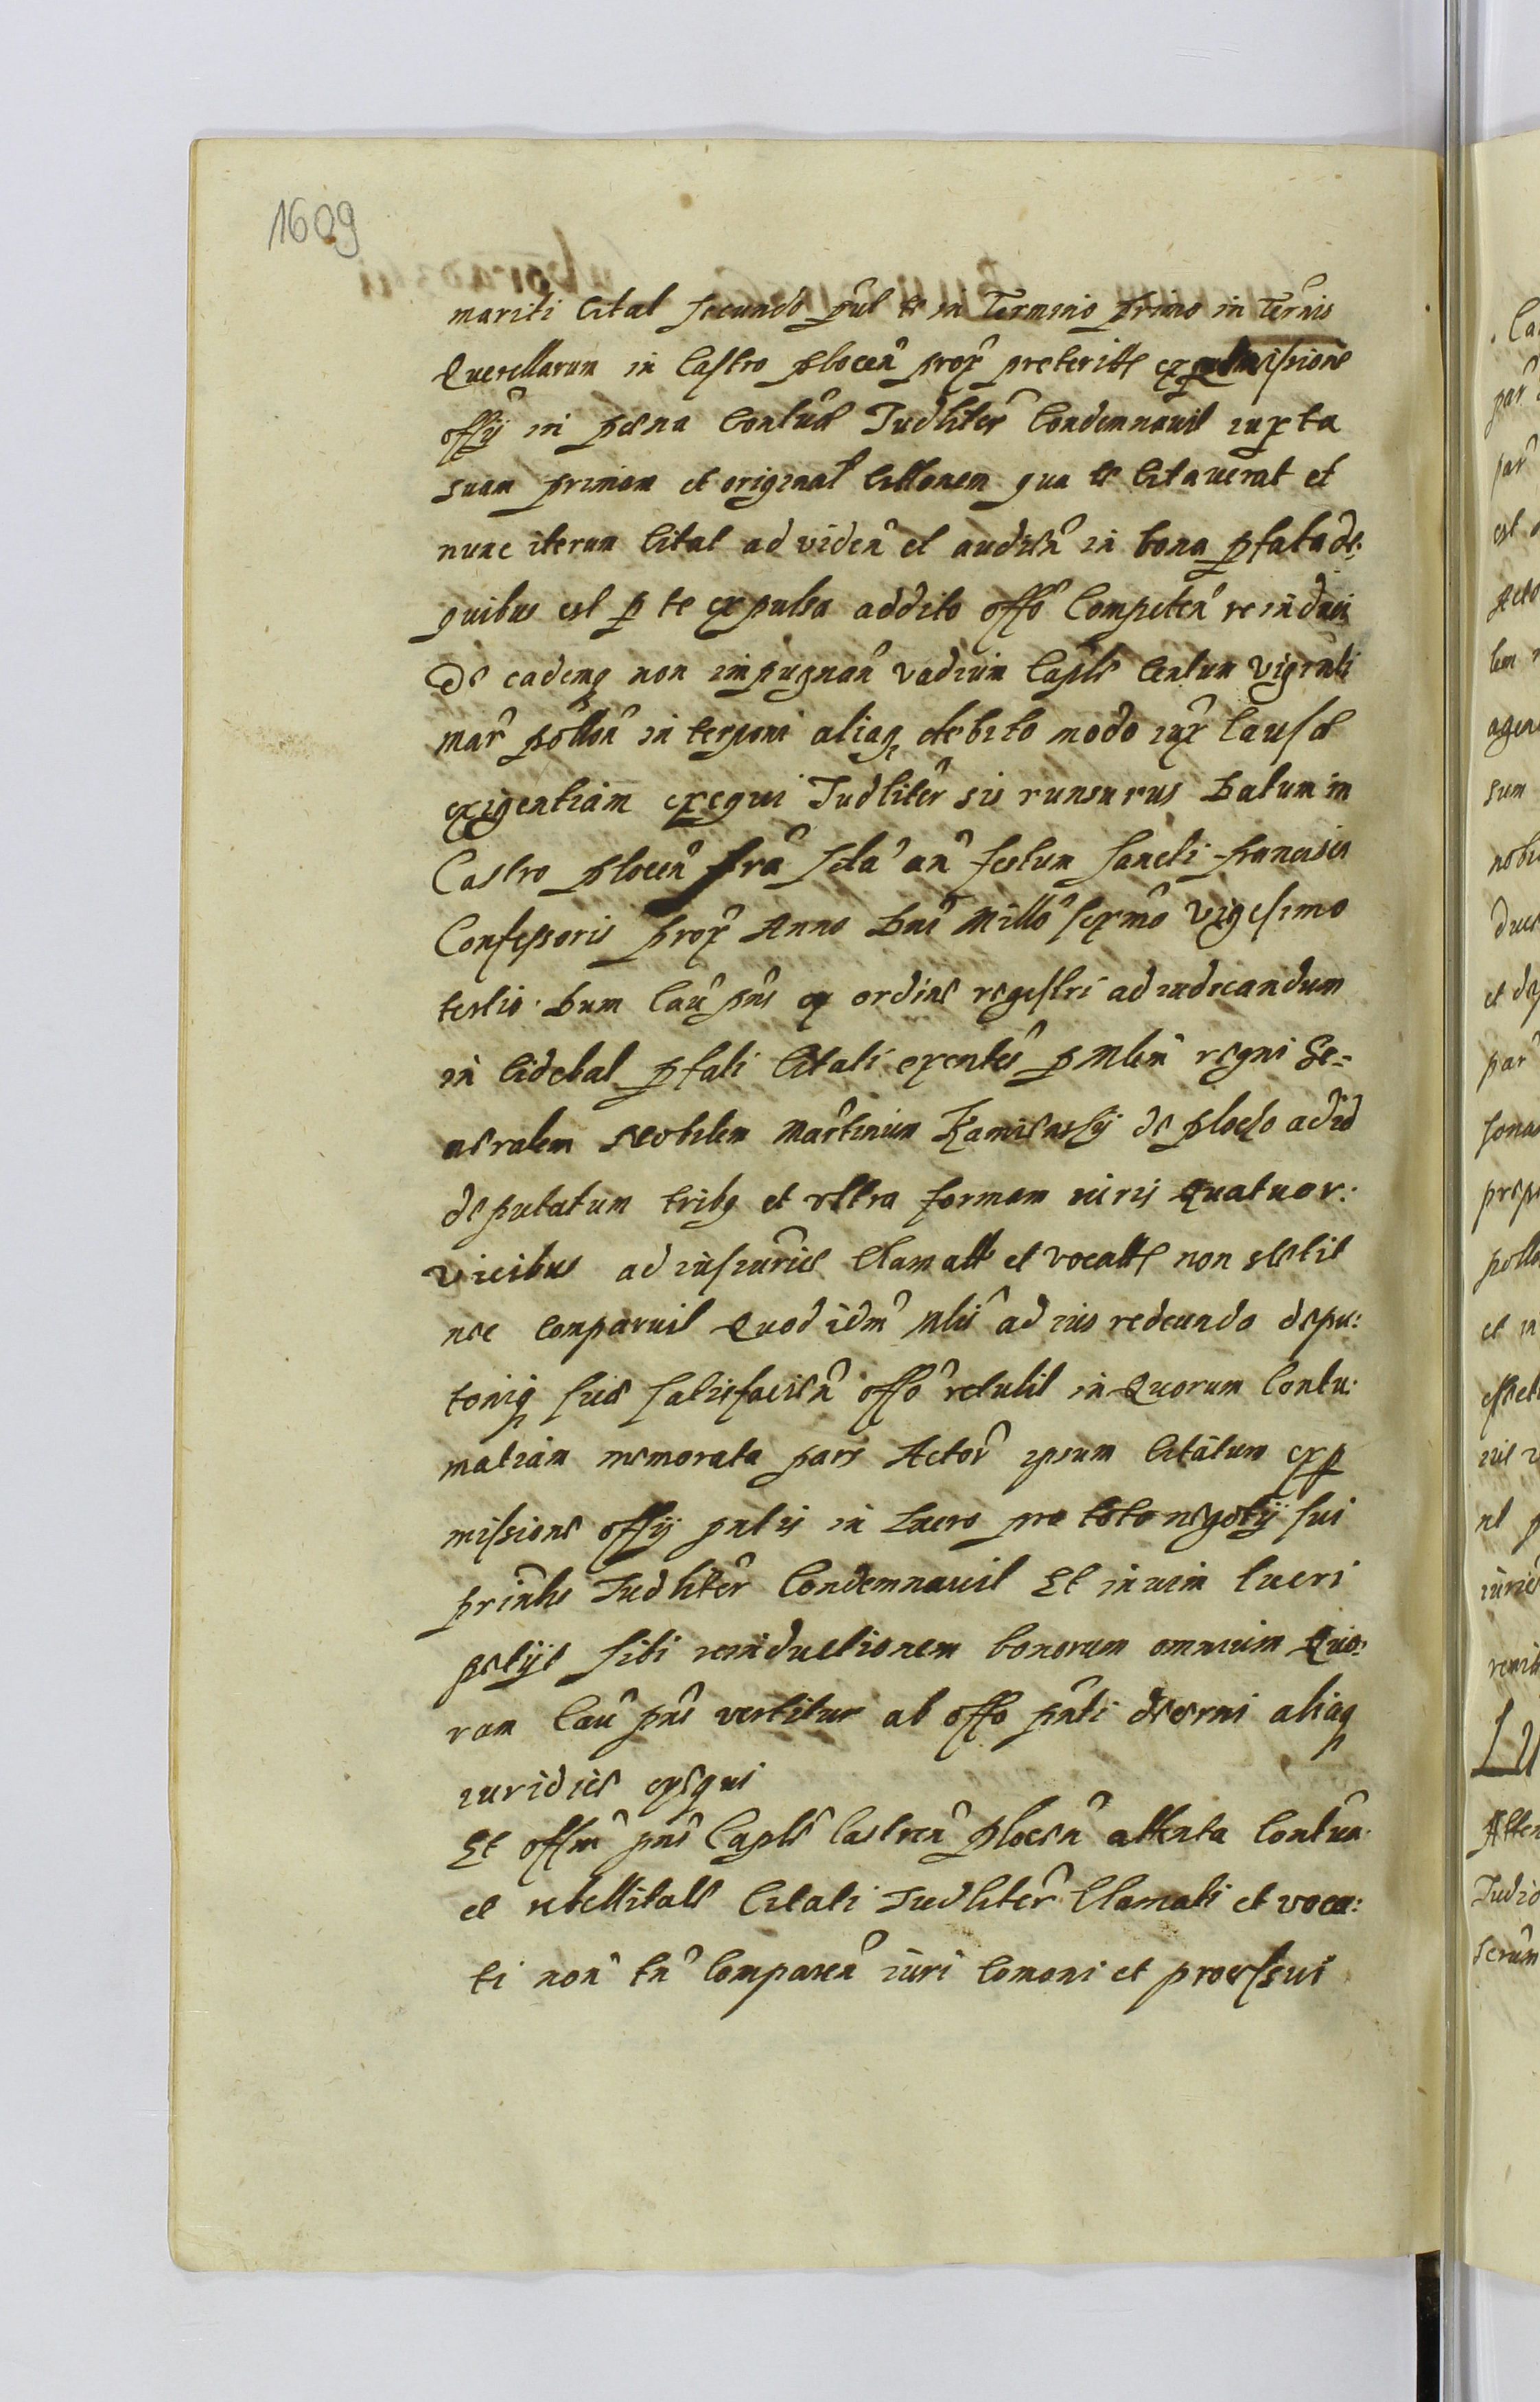 1609
mariti Citat secundo pul te in Termino primo in Ternis
Querellarum in Castro plocen prox preteritt ex permissione
offy in pena Contum Judliter Condemnauit iuxta
suam primam et original Citonem qua te Citauerat et
nunc iterum Citat ad viden et audien in bona pfata de:
quibus est p te expulsa addito offo Competen reinduci
De eademq non impugnan vadium Caple Centum viginti
Mar pollon interponi aliaq debito modo iux Causae
exigentiam exequi Judliter sis runsurus Datum in
Castro plocen fra Scda an festum Sancti Francisci
Confessoris prox Anno Dni Millo sexmo vigesimo
tertio. Dum Cau pns ex ordine regestri ad iudicandum
incidebat pfati Citati exentes p Mlem regni Ge=
neralem Nobilem Martinum Kamiensky de plocko ad id
deputatum tribq et vltra formam iuris Quatuor:
vicibus ad iusiurie Clamatt et vocatt non stetit
nec Comparuit Quod idm Mlis ad ius redeundo depu:
toniq sue satisfacien offo retulit in Quorum Contu:
matiam memorata pars Actor ipsum Citatum ex p
missione offy pntis in Lucro pro toto negoty sui
prinlis Judliter Condemnauit Et in vim lucri
petyt sibi reinductionem bonorum omnium Quo:
rum Cau pns vertitur ab offo pnti decerni aliaq
iuridice exequi
Et offm pns Caple Castren plocen attenta Contum
et rebellitate Citati Judliter Clamati et voca:
ti non tn Comparen iuri Comoni et processui